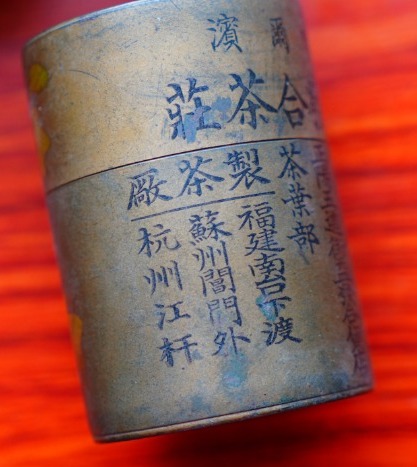 爾濱
合茶莊
茶葉部
製茶厰
福建南台下渡
蘇州閶門外
杭州江杆